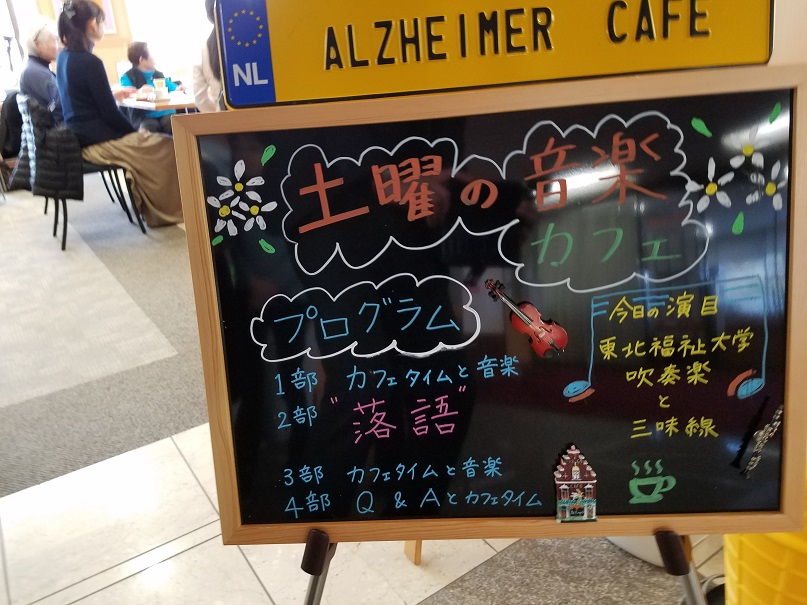 NL
ALZHEIMER CAFE
土曜の音楽
カフェ
プログラム
1部 カフェタイムと音楽
2部 "落語"
3部 カフェタイムと音楽
4部 Q & Aとカフェタイム
今日の演目
東北福祉大学
吹奏楽
と
三味線